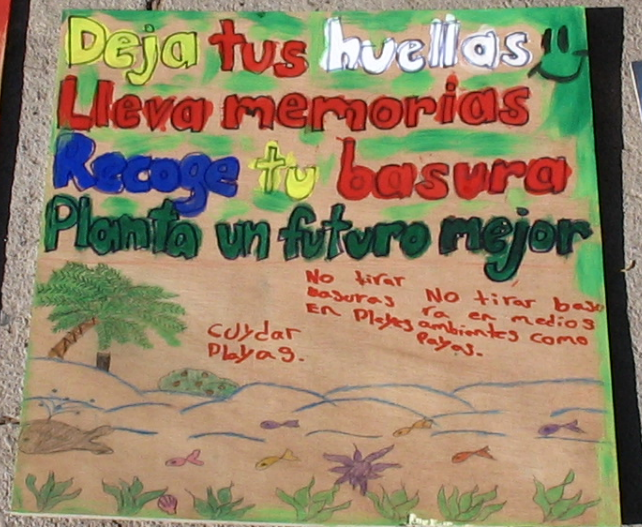 Deja tus huellas
Lleva memorias
Recoge tu basura
Planta un futuro mejor
No tirar
basuras
En Playas
No tirar basu
ra en medios
ambientes como
Payas.
cuydar
Playas.